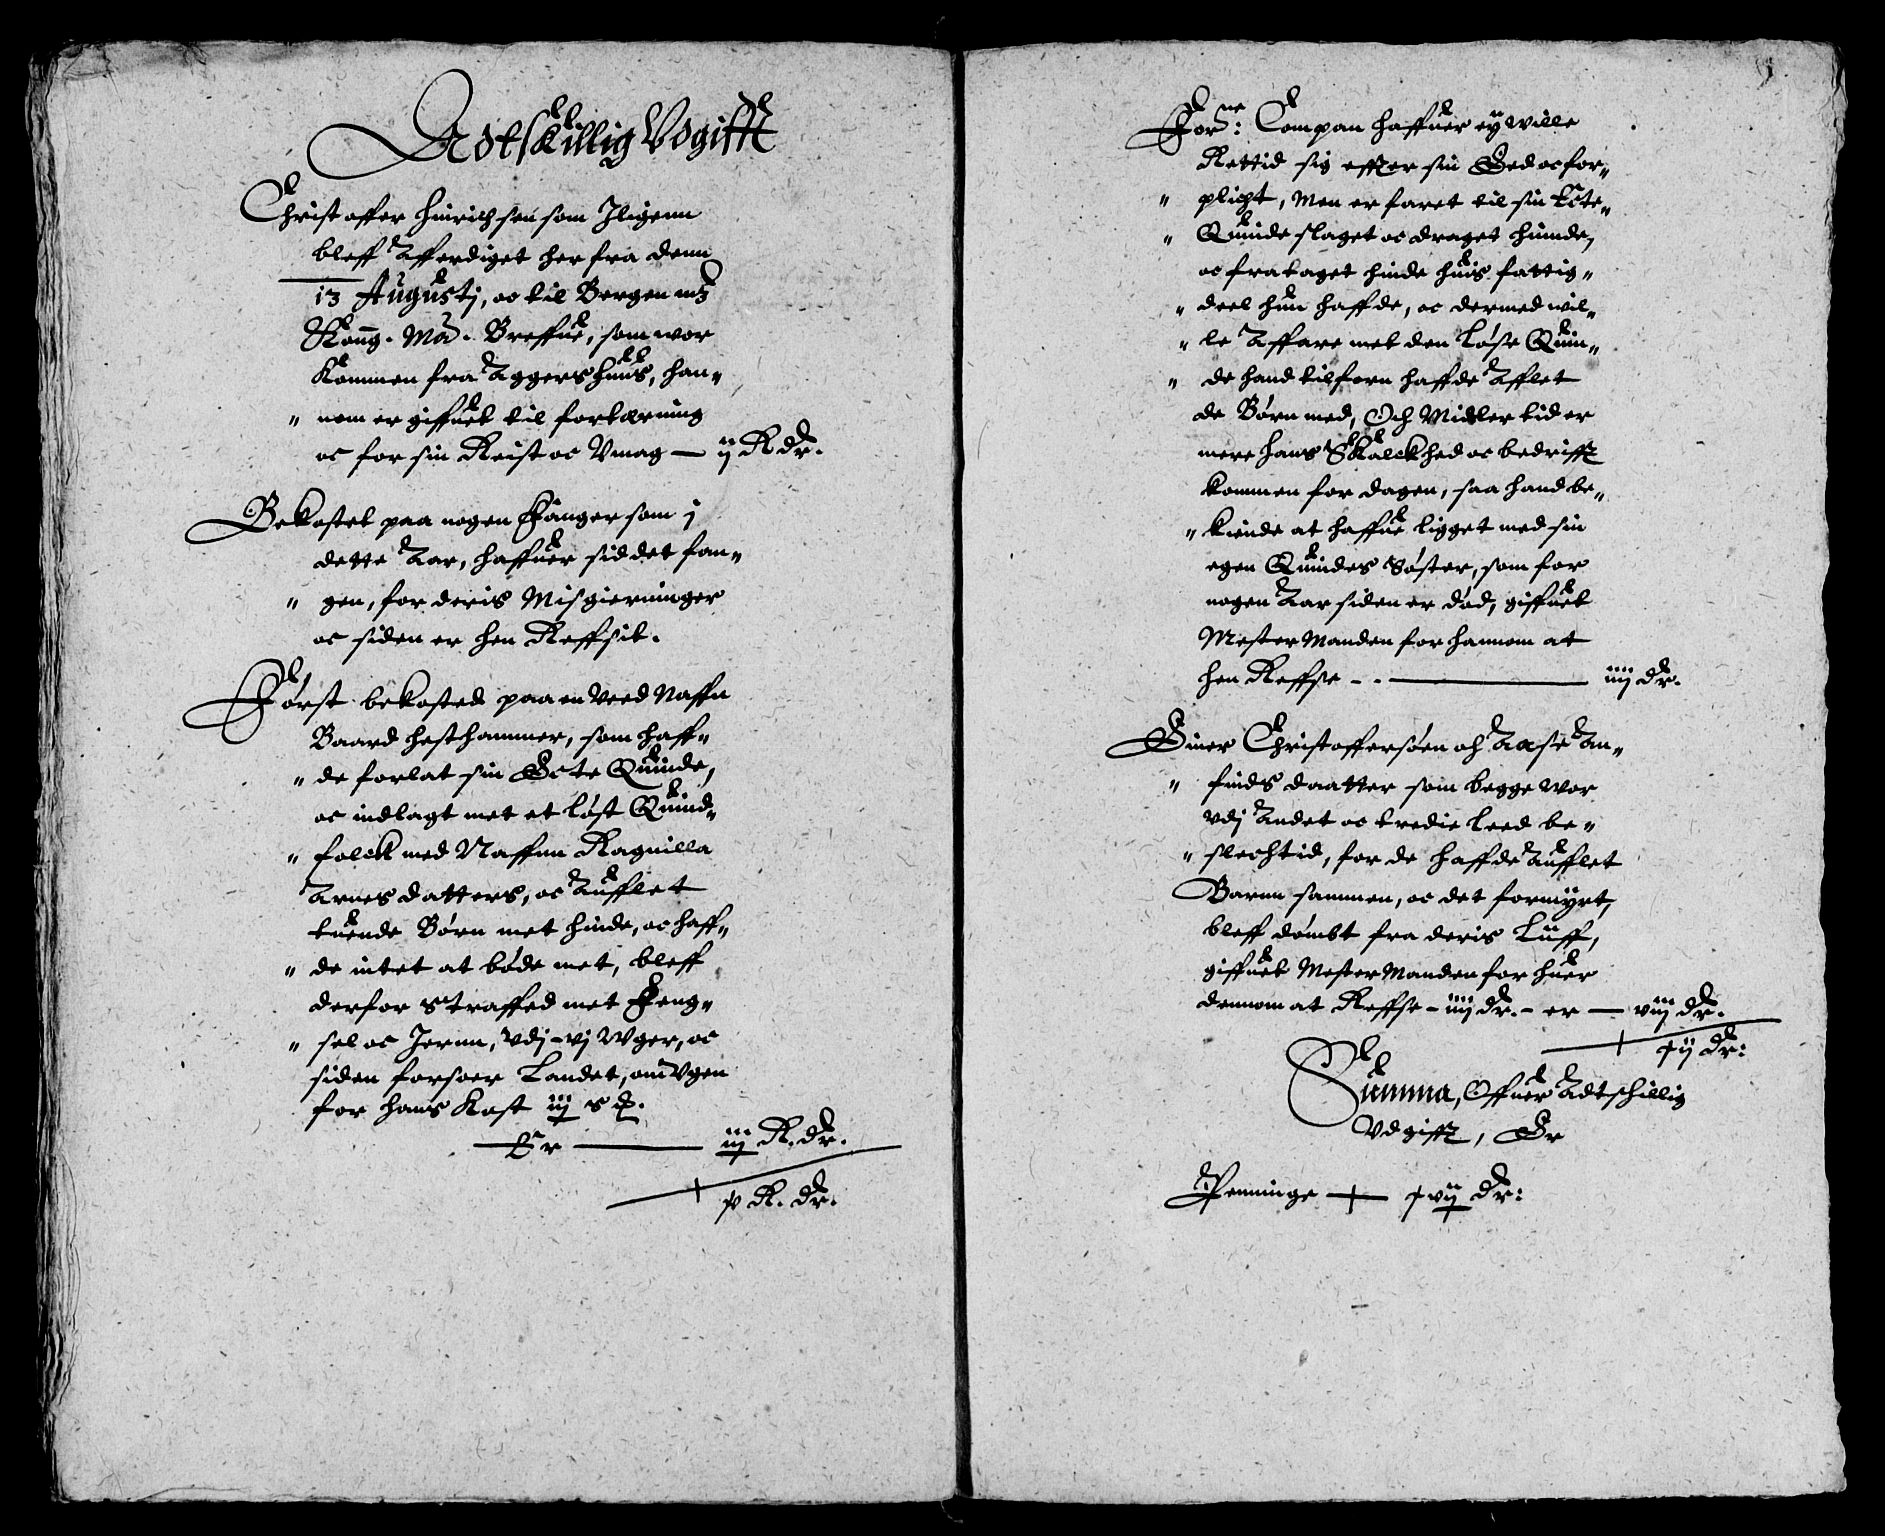 Adtskillig Vdgifft
Christoffer Hinrichsen som Iligenn
bleff Afferdiget her fra denn
13 Augustj, oc til Bergen mz
Konng. Ma. Breffue, som wor
Kommen fra Aggershuus, han„
„ nom er giffuet til fortærning
oc for sin Reist oc Vmag — ij R dr.
Bekostet paa nogen Fanger som j
dette Aar, haffuer siddet fan„
„ gen, for deris Misgierninger
oc siden er hen Reffsit.
Først bekosted paa en ved Naffn
Baard Hesthammer, som haff„
„ de forlat sin Ecte Quinde,
oc indlagt met et løst Quind„
„ folck med Naffnn Ragnilla
Arnesdatters, oc Aufflet
tuende Børn met hinde, oc haff„
„ de intet at bøde met, bleff
derfor straffed met Feng„
„ sel oc Jernn, vdj – vj Wger, oc
siden forsoer Landet, om Vgen
for hans Kost iij s ꝑ.
Er — iij R. dr.
p R. dr.
Forne: Compan haffuer ey wille
Rettid sig effter sin Eed oc for„
„ plicht, Men er faret til sin Ecte„
„ Quinde slaget oc draget hinde,
oc frataget hinde huis fattig„
„ deel hun haffde, oc dermed wil„
„ le Affare met den Løse Quin„
„ de hand tilforn haffde Afflet
de Børn med, Och Midler tid er
mere hans Skalckhed oc bedrifft
kommen for dagen, saa hand be„
„ kiende at haffue ligget med sin
egen Quindes Søster, som for
nogen Aar siden er død, giffuet
Mester Manden for hannom at
hen Reffse – - — iiij dr.
Einer Christoffersøen oh Aase An„
„ finds daatter som begge wor
vdj Andet oc tredie leed be„
„ slechtid, for de haffde Aufflet
Barnn sammen, oc det formyrt,
bleff dømbt fra deris Liiff,
giffuet Mester Manden for huer
dennom at Reffse – iiij dr. – er — viij dr.
xij dr:
Summa, Offuer Adtschillig
Vdgifft, Er
Penninge — xvij dr: